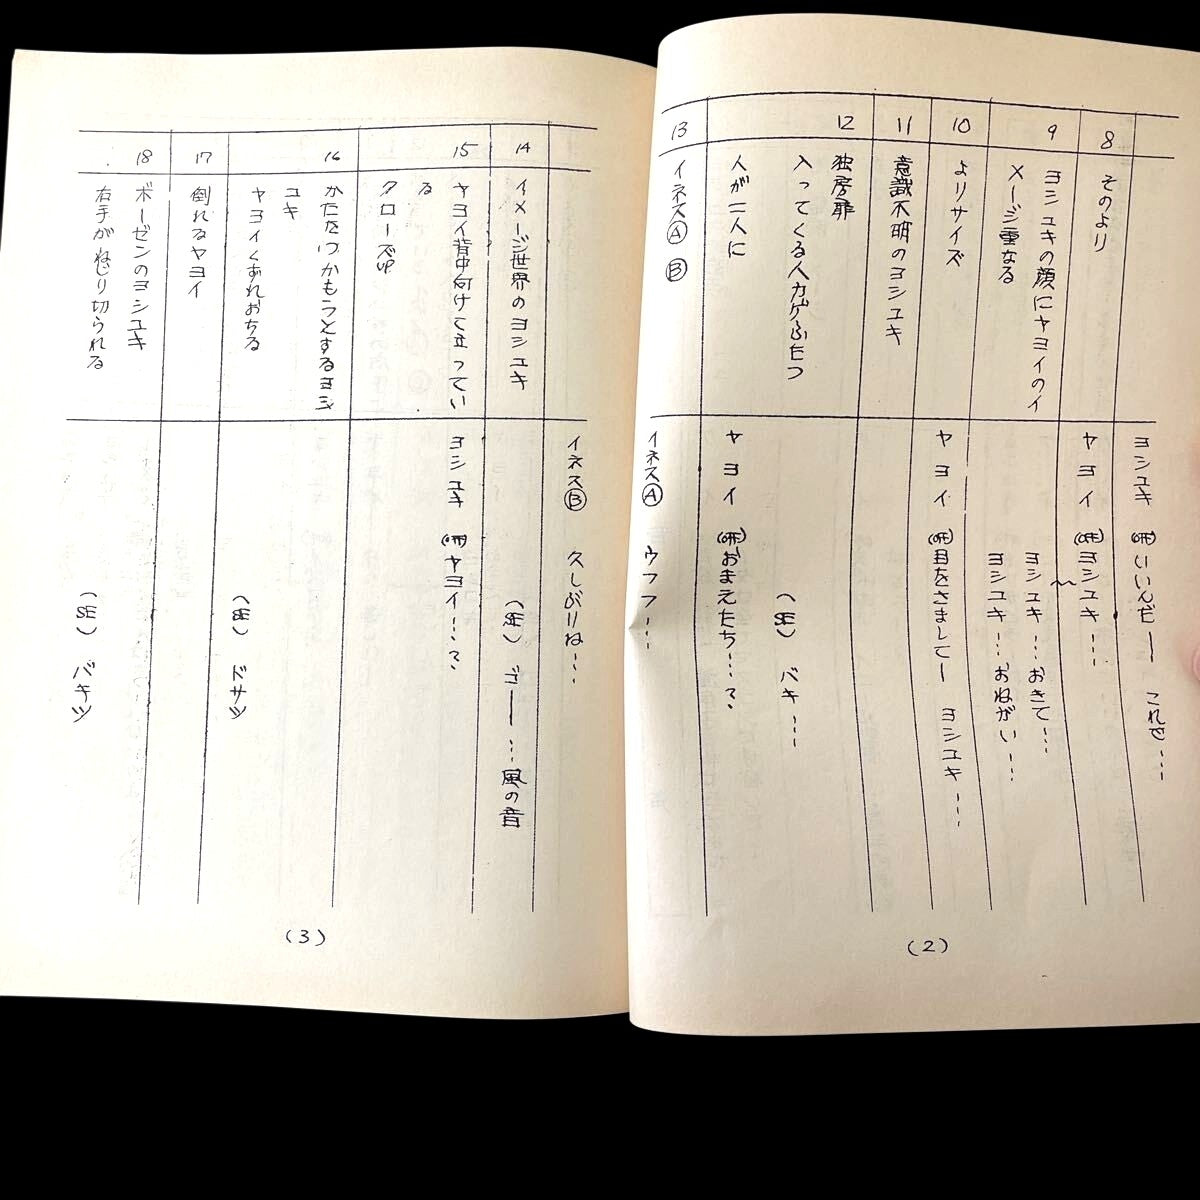 ヨシユキ (OFF) いいんだー これで…
8
そのより
ヤヨイ (OFF) ヨシユキ…
9
ヨシユキの顔にヤヨイのイ
メージ重なる
ヨシユキ…おきて…
ヨシユキ…おねがい…
10
よりサイズ
ヤヨイ (OFF) 目をさましてー ヨシユキ…
11
意識不明のヨシユキ
12
独房扉
入ってくる人カゲふたつ
人が二人に
(SE) バキ…
ヤヨイ (OFF) おまえたち…?
13
イネスⒶ Ⓑ
イネスⒶ ウフフ…
(2)
イネスⒷ 久しぶりね…
14
イメージ世界のヨシユキ
(SE) ゴー…風の音
15
ヤヨイ背中向けて立ってい
る
クローズUP
ヨシユキ (OFF) ヤヨイ…?
16
かたをつかもうとするヨシ
ユキ
ヤヨイくずれおちる
(SE) ドサッ
17
倒れるヤヨイ
18
ボーゼンのヨシユキ
右手がねじり切られる
(SE) バキッ
(3)